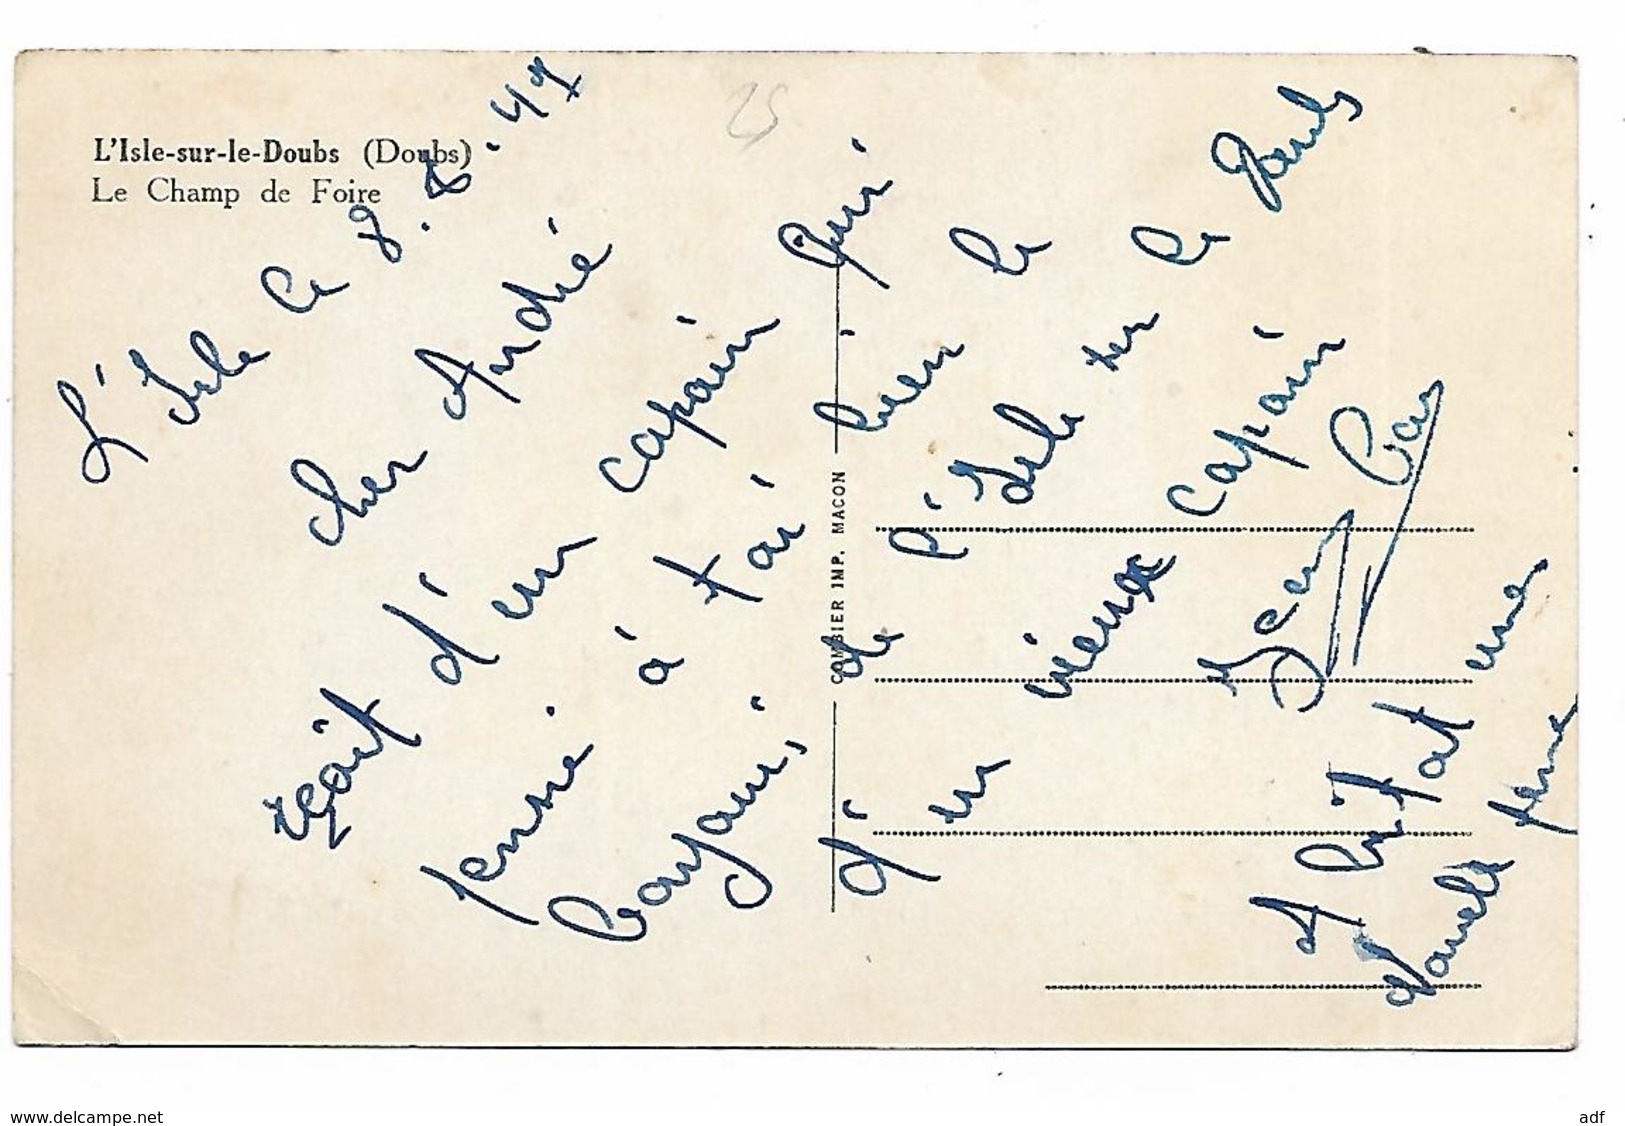 L'Isle-sur-le-Doubs (Doubs)
Le Champ de Foire
25
L'isle le 8.8.47
cher André
reçoit d'un capain qui
pense à toi bien le
de l'isle sur le Doubs
d'un vieux capain
Jean
A bitat une
COMBIER IMP. MACON
www.delcampe.net
adf